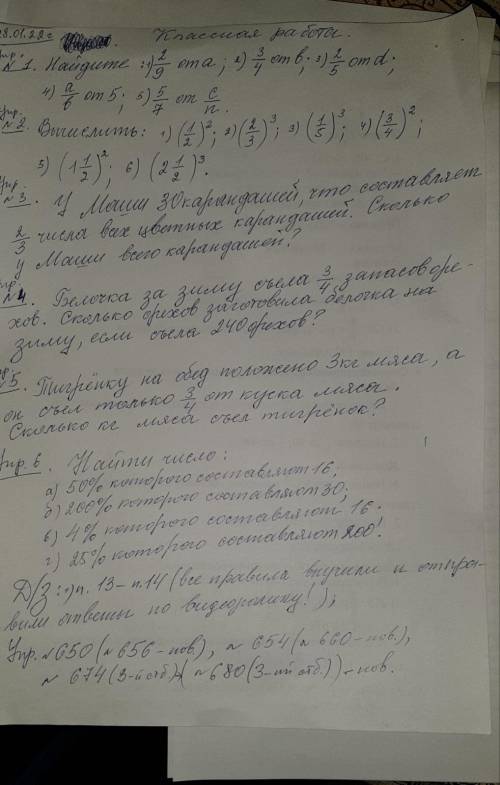 28.01.22г Классная работа.
Упр.
№1. Найдите: 1) 2/9 от a; 2) 3/4 от b; 3) 2/5 от d;
4) a/b от 5; 5) 5/7 от c/n.
Упр.
№2. Вычислить: 1) (1/2)²; 2) (2/3)³; 3) (1/5)³; 4) (3/4)²;
5) (1 1/2)²; 6) (2 1/2)³.
Упр.
№3. У Маши 30 карандашей, что составляет
2/3 числа всех цветных карандашей. Сколько
у Маши всего карандашей?
Упр.
№4. Белочка за зиму съела 3/4 запасов оре-
хов. Сколько орехов заготовила белочка на
зиму, если съела 240 орехов?
№5. Тигрёнку на обед положено 3 кг мяса, а
он съел только 3/4 от куска мяса.
Сколько кг мяса съел тигрёнок?
Упр. 6. Найти число:
а) 50% которого составляют 16;
б) 200% которого составляют 30;
в) 4% которого составляют 16.
г) 25% которого составляют 200!
Д/З: п. 13-п.14 (все правила выучили и отпра-
вили ответы по видеоролику!);
Упр. №650 (№656-нов.), №654 (№660-нов.),
№674 (3-й стб.) (№680 (3-ий стб.))-нов.